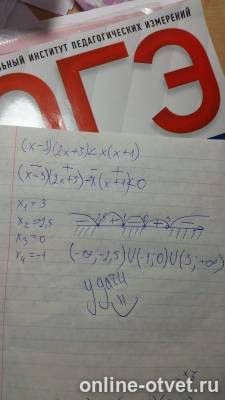 ЛЬНЫЙ ИНСТИТУТ ПЕДАГОГИЧЕСКИХ ИЗМЕРЕНИЙ
ОГЭ
(x-3)(2x+5)<x(x+1)
(x-3)(2x+5)-x(x+1)<0
x₁=3
x₂=-2,5
x₃=0
x₄=-1
(-∞;-2,5)U(-1;0)U(3;+∞)
удачи
online-otvet.ru